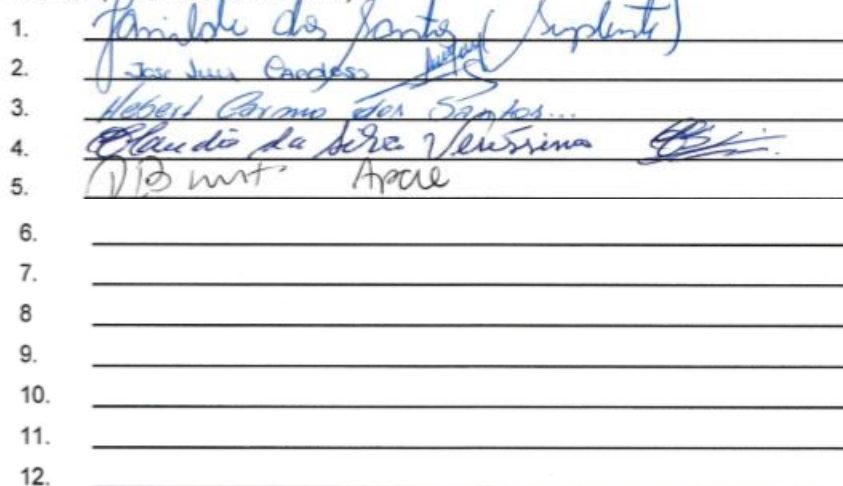 1. dos Santos (Suplente)
2. Jose Luis Cardoso
3. Hebert Carmo dos Santos...
4. Claudio da Silva Veríssimo
5. Apae
6.
7.
8
9.
10.
11.
12.